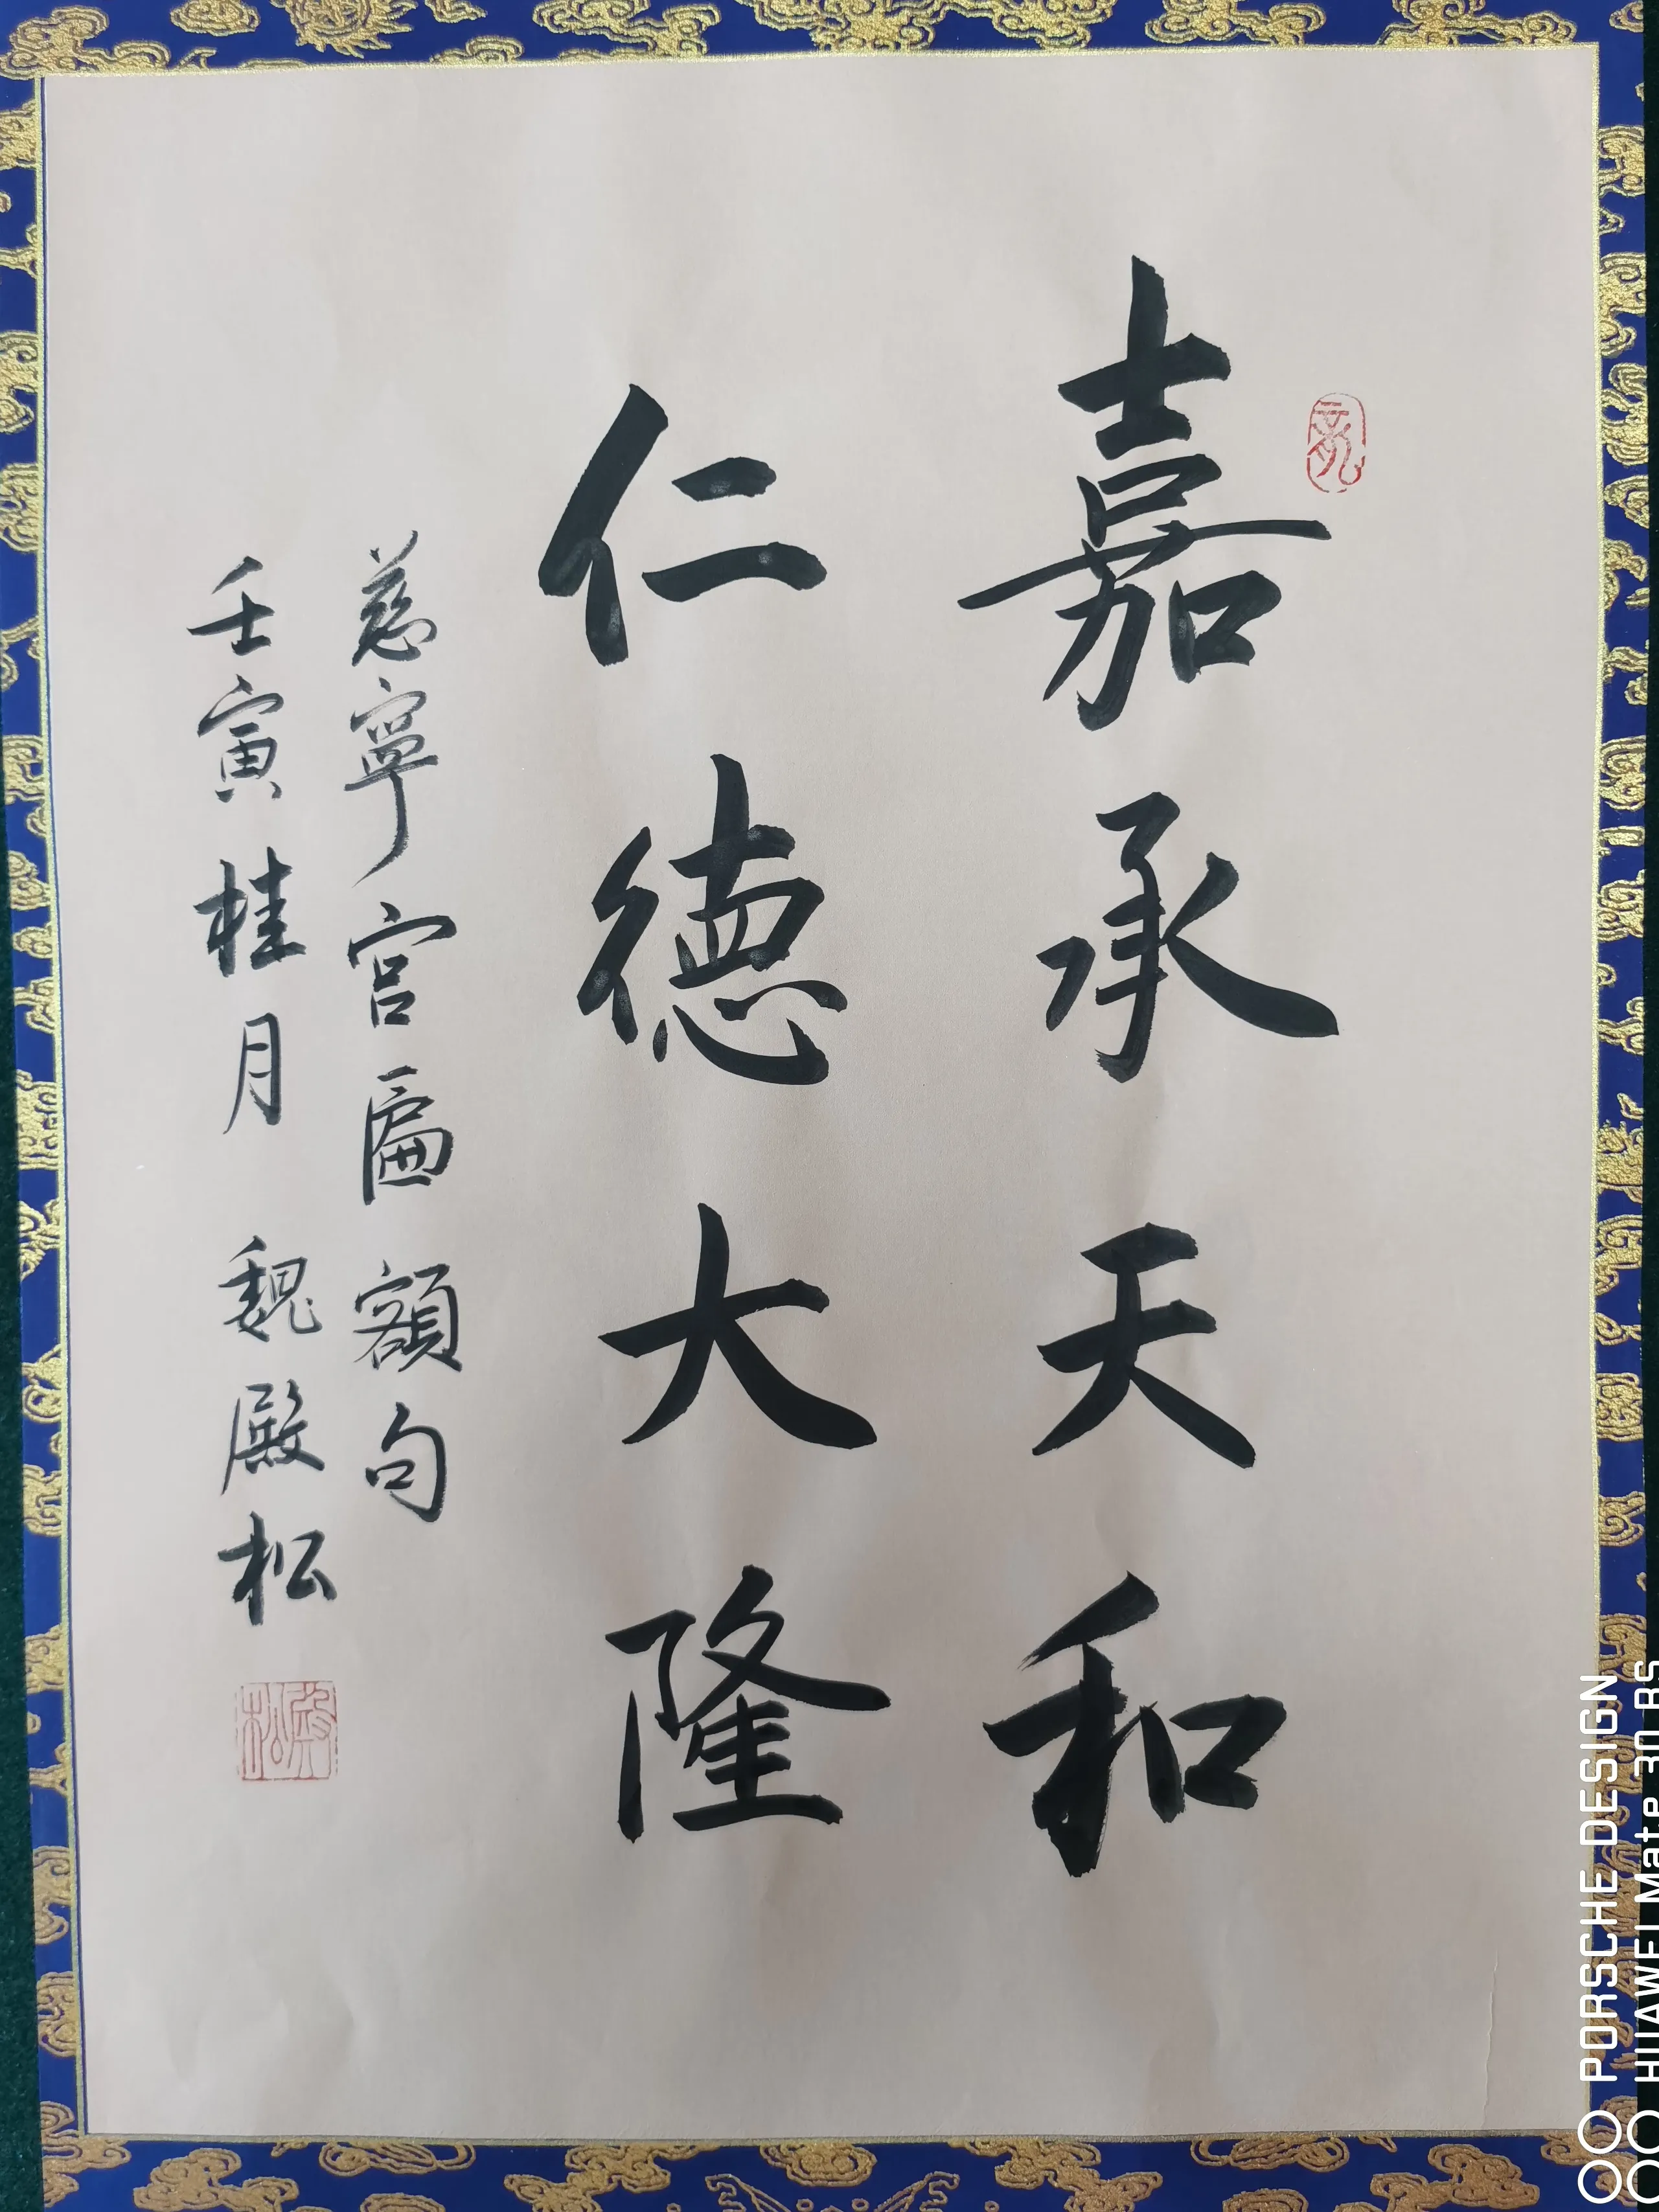 嘉承天和
仁德大隆
慈寧宫匾額句
壬寅桂月 魏殿松
殿松
PORSCHE DESIGN
HUAWEI Mate 30 RS